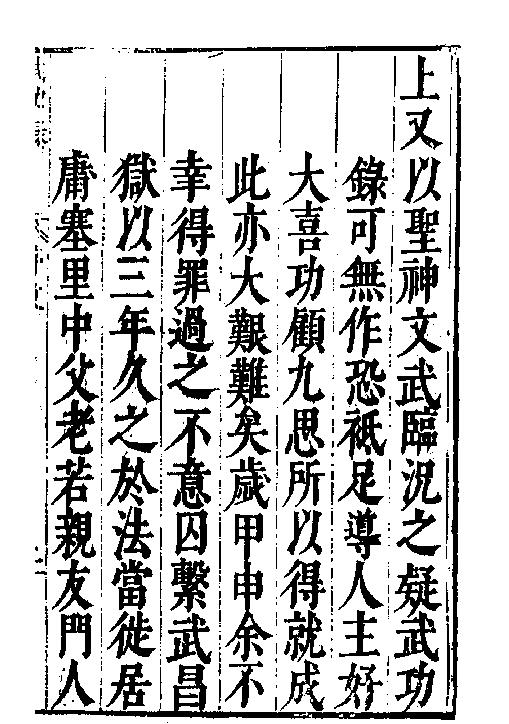 上又以聖神文武臨況之疑武功
錄可無作恐祗足導人主好
大喜功顧九思所以得就成
此亦大艱難矣歲甲申余不
幸得罪過之不意囚繫武昌
獄以三年久之於法當徙居
庸塞里中父老若親友門人